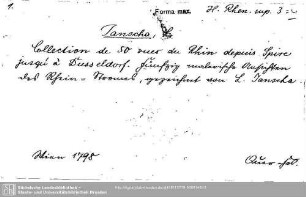 1.
Forma max.
H. Rhen. sup. 3
Janscha, L.
Collection de 50 vues du Rhin depuis Spire
jusqu'à Dusseldorf. Fünfzig malerische Ansichten
des Rhein-Stromes, gezeichnet von L. Janscha
Wien 1798
Quer-fol.
Sächsische Landesbibliothek -
Staats- und Universitätsbibliothek Dresden